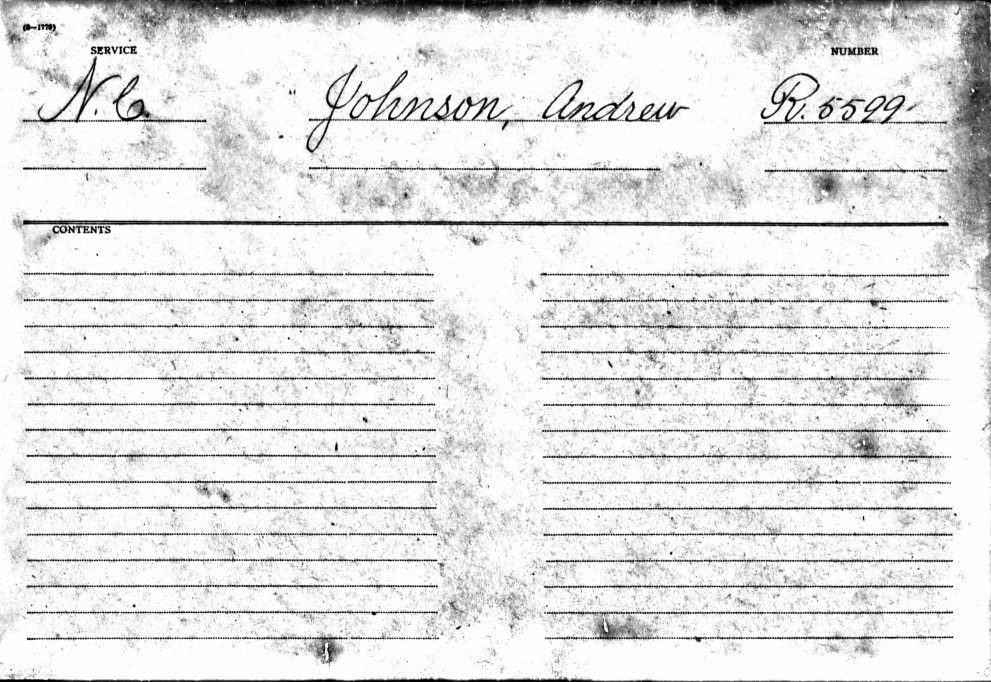 (3—1770)
SERVICE NUMBER
N. C. Johnson, Andrew R. 5599
CONTENTS